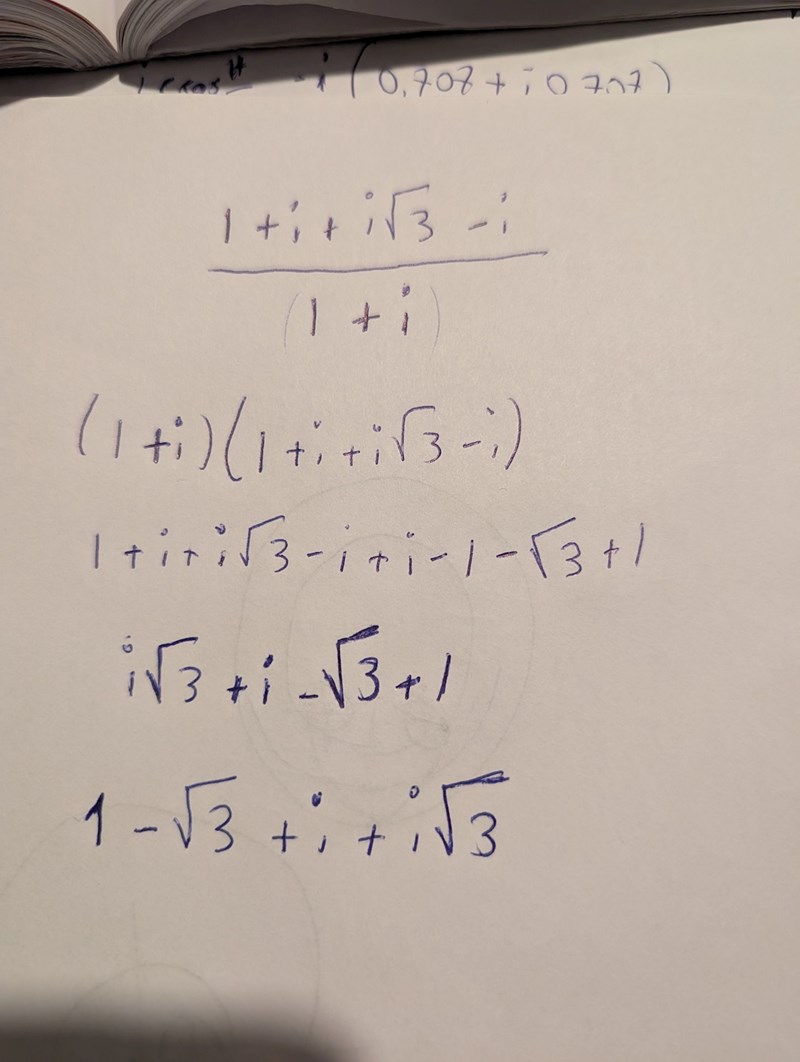 -i(0,707+i0707)
1+i+i√3-i
(1+i)
(1+i)(1+i+i√3-i)
1+i+i√3-i+i-1-√3+1
i√3+i-√3+1
1-√3+i+i√3